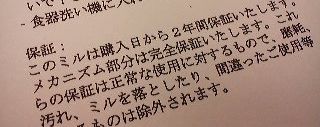 ・食器洗い機に入れ
保証:
このミルは購入日から2年間保証いたします。
メカニズム部分は完全保証いたします。これ
らの保証は正常な使用に対するもので、磨耗、
汚れ、ミルを落としたり、間違ったご使用等
ものは除外されます。